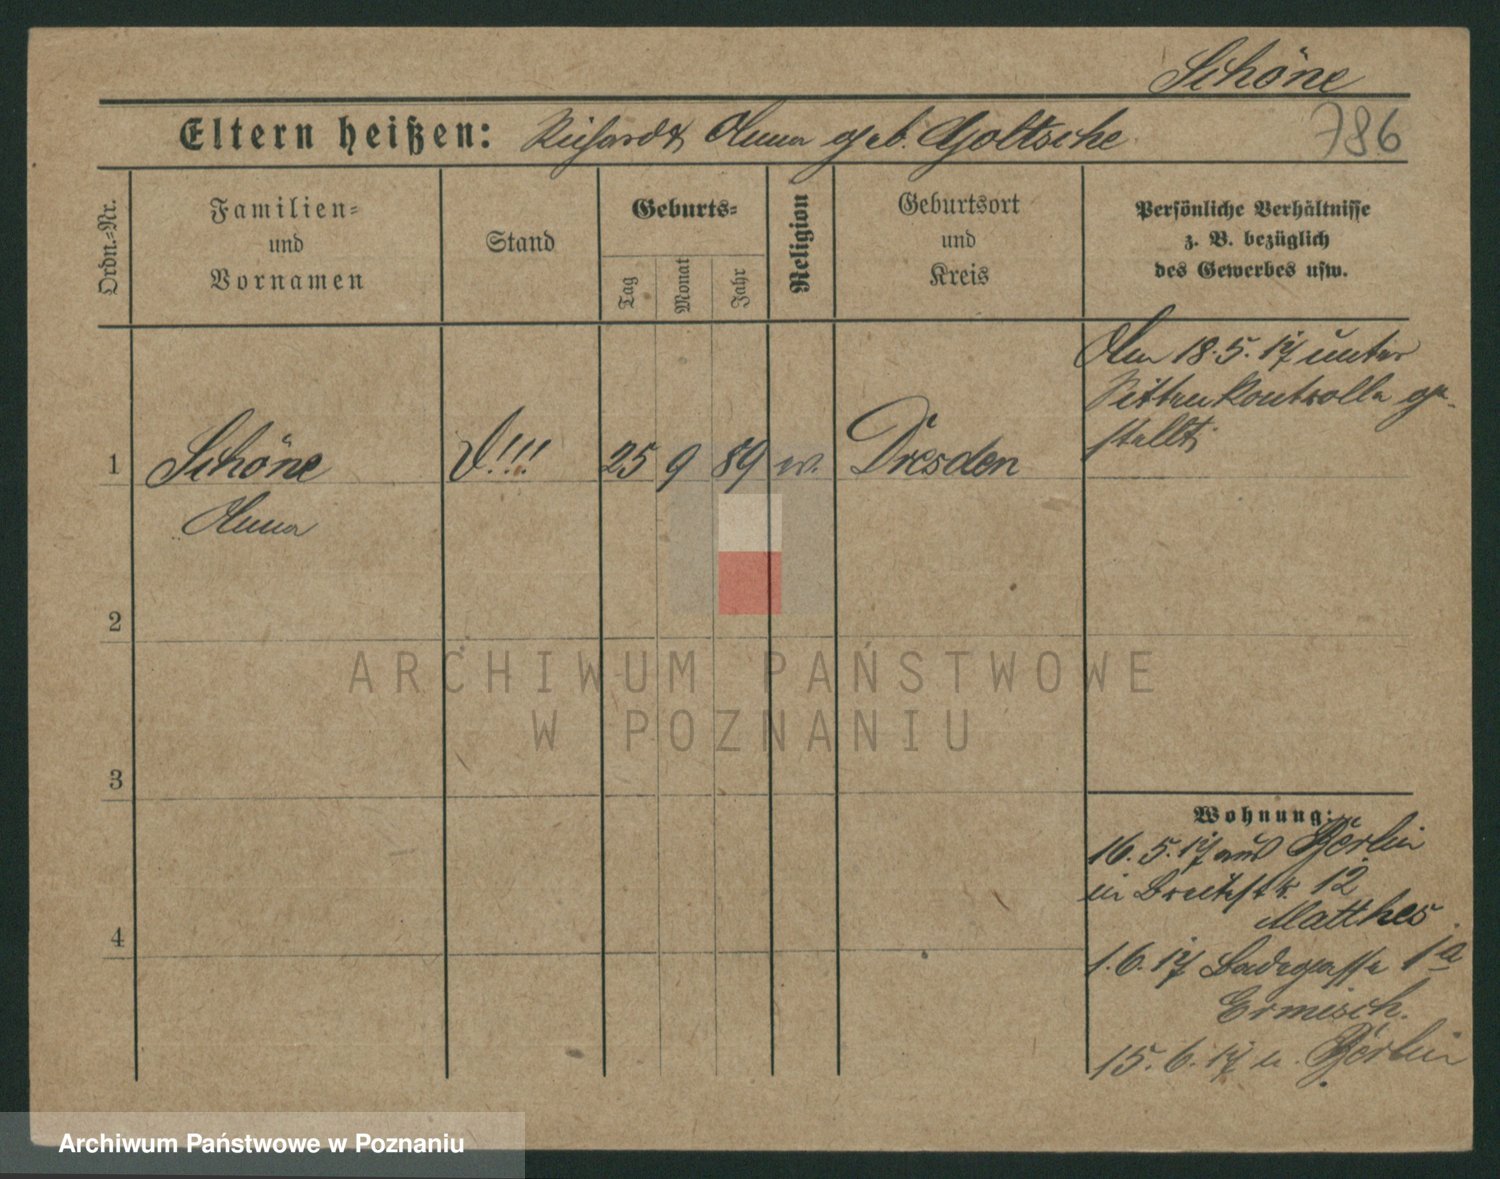 Schöne
Eltern heißen: Richard & Anna geb. Goltsche
786
Ordn.=Nr.
Familien=
und
Vornamen
Stand
Geburts=
Tag
Monat
Jahr
Religion
Geburtsort
und
Kreis
Persönliche Verhältnisse
z. B. bezüglich
des Gewerbes usw.
Am 18.5.17 unter
Sittenkontrolle ge-
stellt.
1 Schöne !!! 25 9 89 Dresden
Anna
2
3
4
Wohnung:
16.5.17 aus Berlin
in Breitestr. 12
Matthes.
1.6.17 Badegasse 1a
Ermisch.
15.6.17 n. Berlin
ARCHIWUM PAŃSTWOWE
W POZNANIU
Archiwum Państwowe w Poznaniu